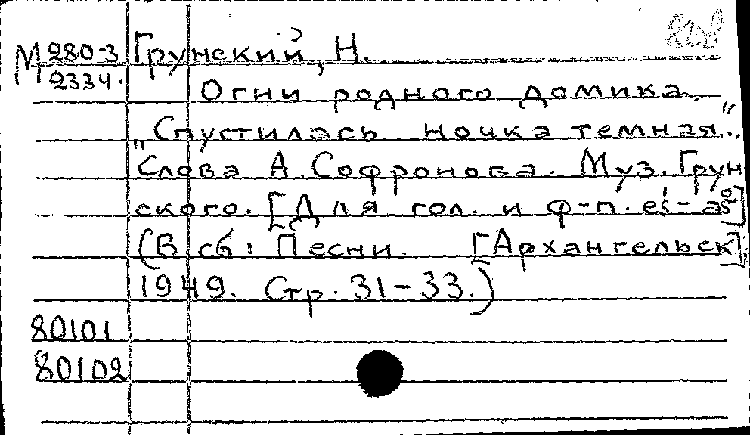 М 280-3 Грунский, Н.
2334.
Огни родного домика.
"Спустилась ночка темная..."
Слова А. Софронова. Муз. Грун
ского. [Для гол. и ф-п. es¹-as²]
(В сб: Песни. [Архангельск]
1949. Стр. 31-33.)
80101
80102